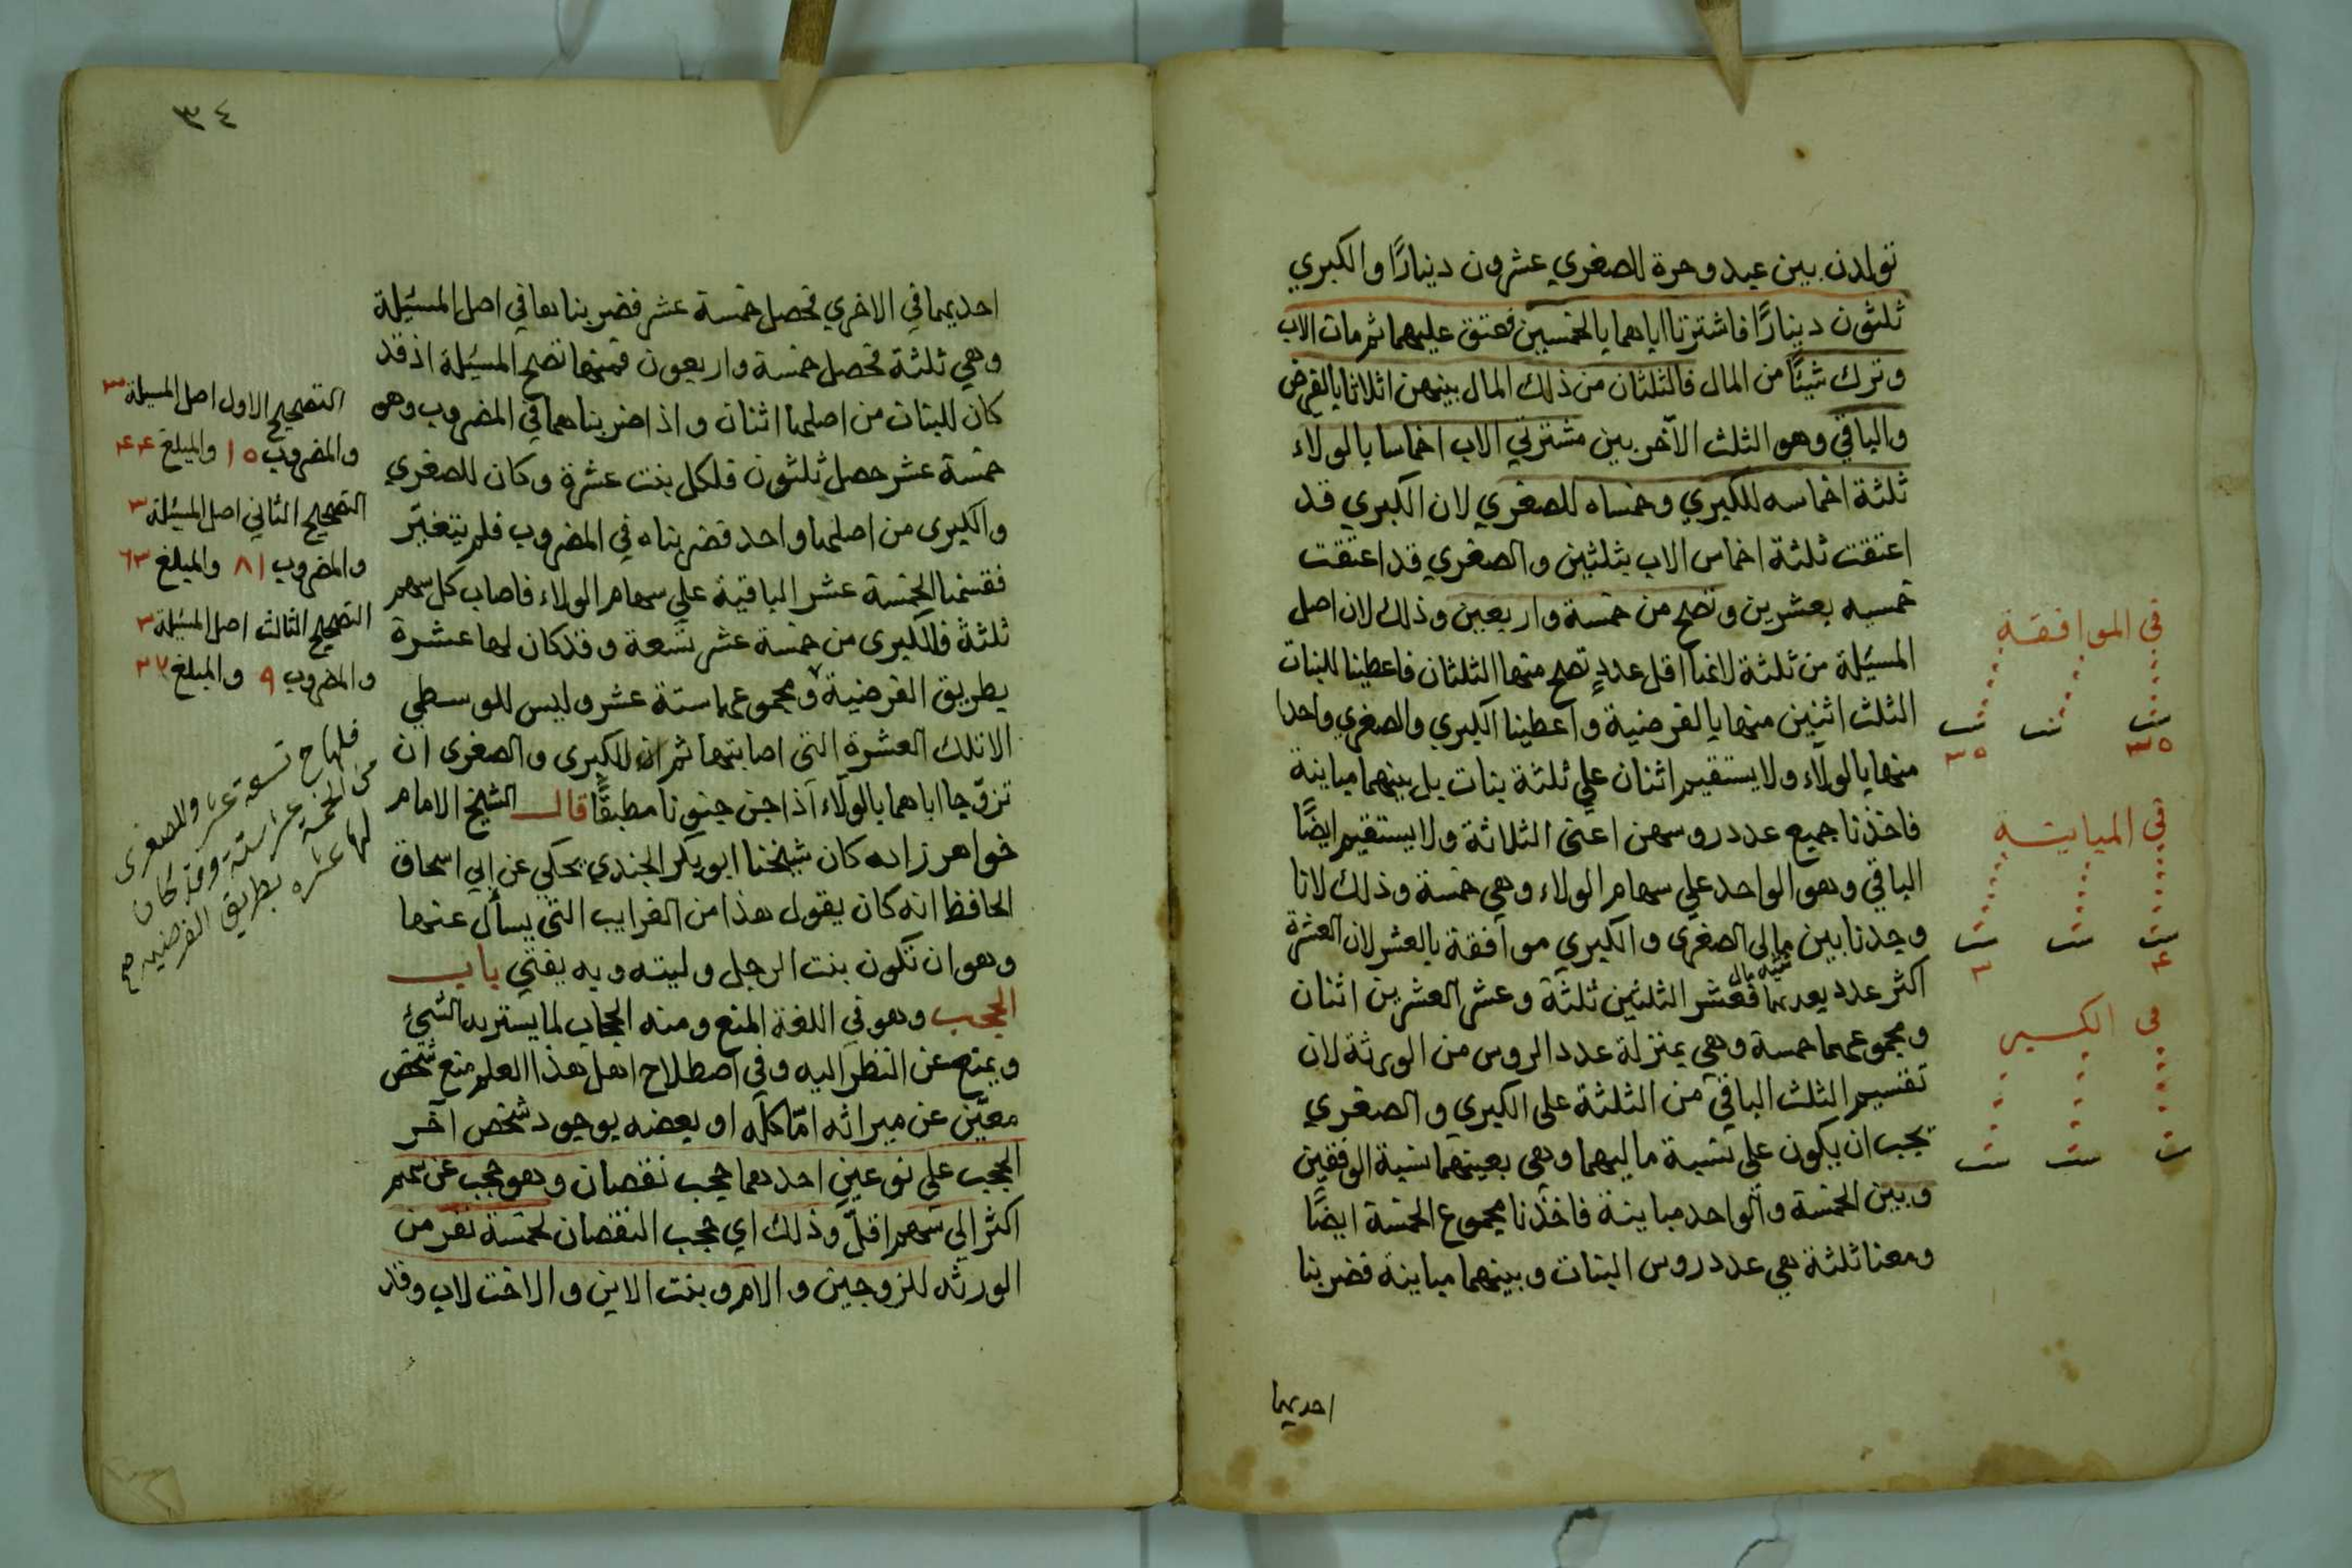 تولدن بين عبد وحرة للصغري عشرون دينارًا وللكبري
ثلثون دينارًا فاشترتا اباهما بالخمسين فعتق عليهما ثم مات الاب
وترك شيئًا من المال فالثلثان من ذلك المال بينهن اثلاثا بالفرض
والباقي وهو الثلث الآخر بين مشتريتي الاب اخماسا بالولاء
ثلثة اخماسه للكبري وخمساه للصغري لان الكبري قد
اعتقت ثلثة اخماس الاب بثلثين والصغري قد اعتقت
خمسيه بعشرين وتصح من خمسة واربعين وذلك لان اصل
المسئلة من ثلثة لانها اقل عددٍ تصح منها الثلثان فاعطينا للبنات
الثلث اثنين منها بالفرضية واعطينا الكبري والصغري واحدا
منها بالولاء ولا يستقيم اثنان علي ثلثة بنات بل بينهما مباينة
فاخذنا جميع عدد روسهن اعني الثلاثة ولا يستقيم ايضًا
الباقي وهو الواحد علي سهام الولاء وهي خمسة وذلك لانا
وجدنا بين مالي الصغري والكبري موافقة بالعشر لان العشرة
اكثر عدد يعدهما فعُشر الثلثين ثلثة وعشر العشرين اثنان
ومجموعهما خمسة وهي بمنزلة عدد الروس من الورثة لان
تقسيم الثلث الباقي من الثلثة على الكبري والصغري
يجب ان يكون علي نسبة ماليهما وهي بعينهما نسبة الوفقين
وبين الخمسة والواحد مباينة فاخذنا مجموع الخمسة ايضًا
ومعنا ثلثة هي عدد روس البنات وبينهما مباينة فضربنا
احديهما
في الموافقة
بنت بنت بنت
٣٥ ٣٥
في المباينة
بنت بنت بنت
٤ ٣
في الكسر
بنت بنت بنت
٣٤
احديهما في الاخري تحصل خمسة عشر فضربناها في اصل المسئلة
وهي ثلثة تحصل خمسة واربعون فمنها تصح المسئلة اذ قد
كان للبنات من اصلها اثنان واذا ضربناهما في المضروب وهو
خمسة عشر حصل ثلثون فلكل بنت عشرة وكان للصغري
والكبرى من اصلها واحد فضربناه في المضروب فلم يتغيّر
فقسمنا الخمسة عشر الباقية علي سهام الولاء فاصاب كل سهم
ثلثة فللكبرى من خمسة عشر تسعة وقد كان لها عشرة
بطريق الفرضية ومجموعها ستة عشر وليس للوسطي
الا تلك العشرة التى اصابتها ثم ان للكبرى والصغرى ان
تزوّجا اباهما بالولاء اذا جن جنونا مطبقًا قال الشيخ الامام
خواهرزاده كان شيخنا ابو بكر الجندي يحكي عن ابي اسحاق
الحافظ انه كان يقول هذا من الغرايب التى يسأل عنها
وهو ان تكون بنت الرجل وليته وبه يفتي باب
الحجب وهو في اللغة المنع ومنه الحجاب لما يستر به الشيء
ويمنع عن النظر اليه وفي اصطلاح اهل هذا العلم منع شخص
معيّن عن ميراثه امّا كله او بعضه بوجود شخص آخر
الحجب على نوعين احدهما حجب نقصان وهو حجب عن سهم
اكثر الي سهم اقلّ وذلك اي حجب النقصان لخمسة نفر من
الورثه للزوجين والام وبنت الابن والاخت لاب وقد
التصحيح الاول اصل المسئلة ٣
والمضروب ١٥ والمبلغ ٤٤
التصحيح الثاني اصل المسئلة ٣
والمضروب ٨١ والمبلغ ٦٣
التصحيح الثالث اصل المسئلة ٣
والمضروب ٩ والمبلغ ٣٧
فلها ح تسعة عشر وللصغرى
من الخمسة عشر ستة وقد كان
لها عشره بطريق الفرضيه صح